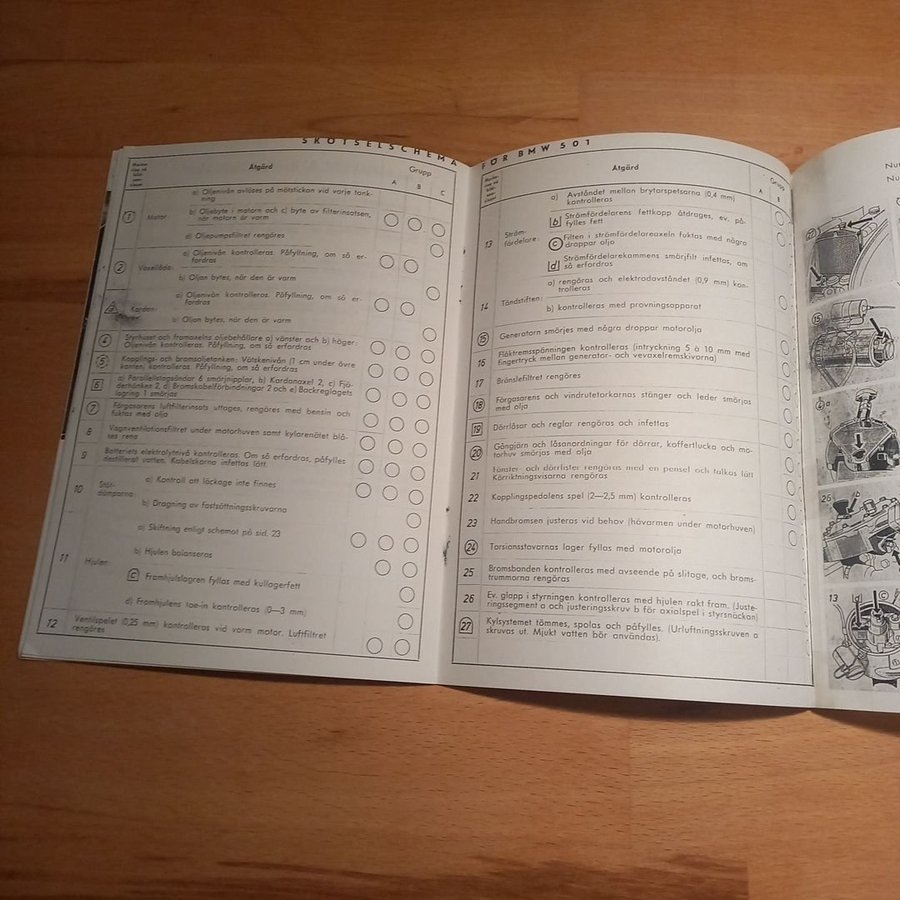 SKÖTSELSCHEMA FÖR BMW 501
Åtgärd
Grupp
A B C
a) Oljenivån avlöses på mätstickan vid varje tank-
ning
1 Motor
b) Oljebyte i motorn och c) byte av filterinsatsen,
när motorn är varm
d) Oljepumpsfiltret rengöres
2 Växellåda:
a) Oljenivån kontrolleras. Påfyllning, om så er-
fordras
b) Oljan bytes, när den är varm
3 Kardan:
a) Oljenivån kontrolleras. Påfyllning, om så er-
fordras
b) Oljan bytes, när den är varm
4 Styrhuset och framaxelns oljebehållare a) vänster och b) höger:
Oljenivån kontrolleras. Påfyllning, om så erfordras
5 Kopplings- och bromsoljetanken: Vätskenivån (1 cm under övre
kanten) kontrolleras. Påfyllning, om så erfordras
6 a) Parallellstagsändar 6 smörjnipplar, b) Kardanaxel 2, c) Fjä-
derhänken 2, d) Bromskabelförbindningar 2 och e) Backreglagets
lagring 1 smörjas
7 Förgasarens luftfilterinsats uttages, rengöres med bensin och
fuktas med olja
8 Vagnventilationsfiltret under motorhuven samt kylarenätet blå-
ses rena
9 Batteriets elektrolytnivå kontrolleras. Om så erfordras, påfylles
destillerat vatten. Kabelskorna infettas lätt.
10 Stöt-
dämparna:
a) Kontroll att läckage inte finnes
b) Dragning av fastsättningsskruvarna
11 Hjulen:
a) Skiftning enligt schemat på sid. 23
b) Hjulen balanseras
c Framhjulslagren fyllas med kullagerfett
d) Framhjulens toe-in kontrolleras (0—3 mm)
12 Ventilspelet (0,25 mm) kontrolleras vid varm motor. Luftfiltret
rengöres
Åtgärd
Grupp
A B
13 Ström-
fördelare:
a) Avståndet mellan brytarspetsarna (0,4 mm)
kontrolleras
b Strömfördelarens fettkopp åtdrages, ev. på-
fylles fett
c Filten i strömfördelareaxeln fuktas med några
droppar olja
d Strömfördelarekammens smörjfilt infettas, om
så erfordras
14 Tändstiften:
a) rengöras och elektrodavståndet (0,9 mm) kon-
trolleras
b) kontrolleras med provningsapparat
15 Generatorn smörjes med några droppar motorolja
16 Fläktremsspänningen kontrolleras (intryckning 5 à 10 mm med
fingertryck mellan generator- och vevaxelremskivorna)
17 Bränslefiltret rengöres
18 Förgasarens och vindrutetorkarnas stänger och leder smörjas
med olja
19 Dörrlåsar och reglar rengöras och infettas
20 Gångjärn och låsanordningar för dörrar, koffertlucka och mo-
torhuv smörjas med olja
21 Fönster- och dörrlister rengöras med en pensel och talkas lätt
Körriktningsvisarna rengöras
22 Kopplingspedalens spel (2—2,5 mm) kontrolleras
23 Handbromsen justeras vid behov (hävarmen under motorhuven)
24 Torsionsstavarnas lager fyllas med motorolja
25 Bromsbanden kontrolleras med avseende på slitage, och broms-
trummorna rengöras
26 Ev. glapp i styrningen kontrolleras med hjulen rakt fram. (Juste-
ringssegment a och justeringsskruv b för axiolspel i styrsnäckan)
27 Kylsystemet tömmes, spolas och påfylles. (Urluftningsskruven a
skruvas ut. Mjukt vatten bör användas).
27
15
4 a
26 b
13 c